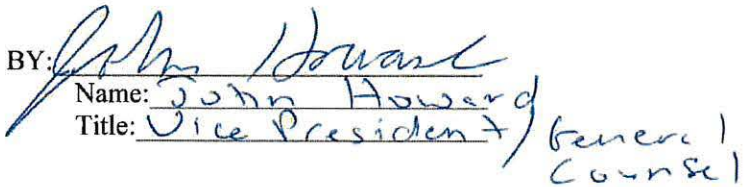 BY: John Howard
Name: John Howard
Title: Vice President/ General
Counsel